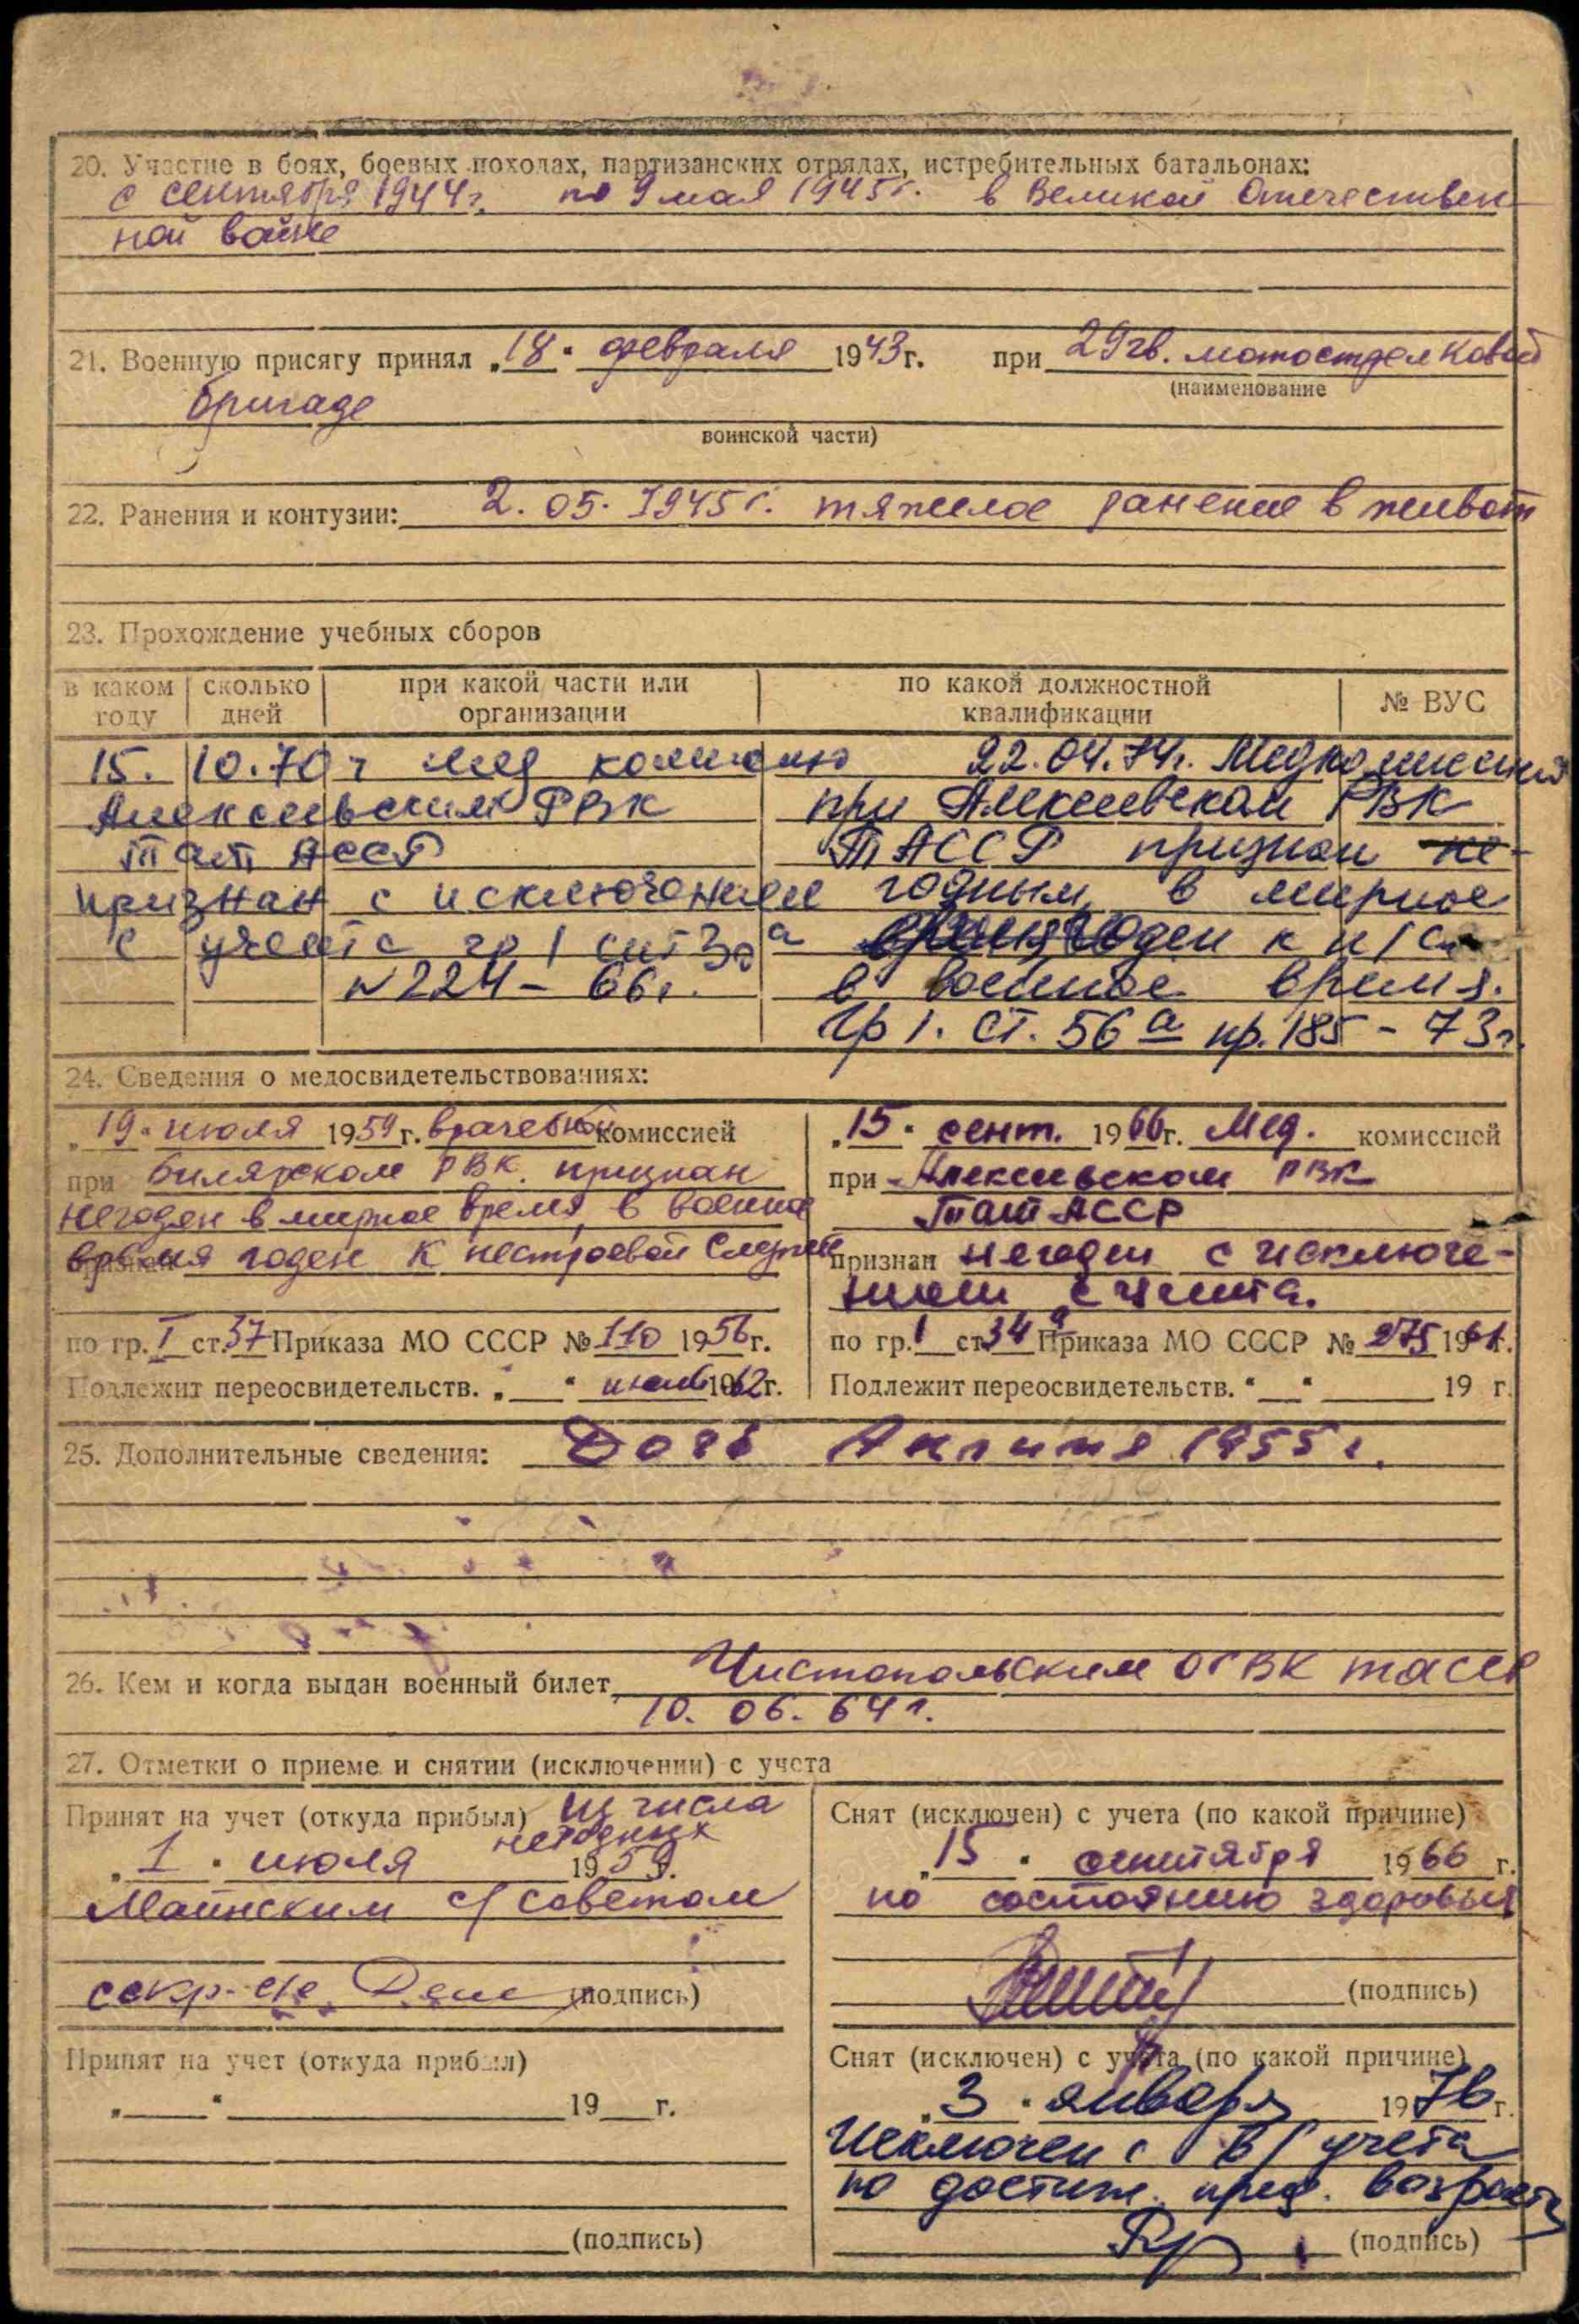 20. Участие в боях, боевых походах, партизанских отрядах, истребительных батальонах:
с сентября 1944г. по 9 мая 1945г. в Великой Отечествен
ной войне
21. Военную присягу принял „18" февраля 1943 г. при 29 гв. мотострелковой
(наименование
бригаде
воинской части)
22. Ранения и контузии: 2.05.1945 г. тяжелое ранение в живот
23. Прохождение учебных сборов
в каком году
сколько дней
при какой части или организации
по какой должностной квалификации
№ ВУС
15.10.70 г мед
Алексеевским РВК
Тат АССР
признан с исключением
с учета гр 1 ст 30 а
№ 224 - 66г.
22.04.74г. Медкомиссией
при Алексеевском РВК
ТАССР признан не-
годным в мирное
время годен к н/сл
в военное время.
гр 1. ст. 56 а пр. 185 - 73г.
24. Сведения о медосвидетельствованиях:
„19" июля 1959 г. врачебной комиссией
при Билярском РВК. признан
негоден в мирное время, в военное
время годен к нестроевой службе
по гр. I ст. 37 Приказа МО СССР № 110 1956 г.
Подлежит переосвидетельств. „ " 1962 г.
„15" сент. 1966 г. Мед. комиссией
при Алексеевском РВК
Тат АССР
признан негоден с исключе-
нием с учета.
по гр. 1 ст. 34 а Приказа МО СССР № 275 1961 г.
Подлежит переосвидетельств. " " 19 г.
25. Дополнительные сведения: Дочь 1955 г.
26. Кем и когда выдан военный билет Чистопольским ОГВК ТАССР
10.06.64 г.
27. Отметки о приеме и снятии (исключении) с учета
Принят на учет (откуда прибыл) из числа
негодных
„1" июля 1959.
Маинским с/советом
секр-
(подпись)
Снят (исключен) с учета (по какой причине)
„15" сентября 1966 г.
по состоянию здоровья
(подпись)
Принят на учет (откуда прибыл)
„ " 19 г.
(подпись)
Снят (исключен) с учета (по какой причине)
„3" января 1976 г.
Исключен с в/учета
по достиж. пред. возраста
(подпись)